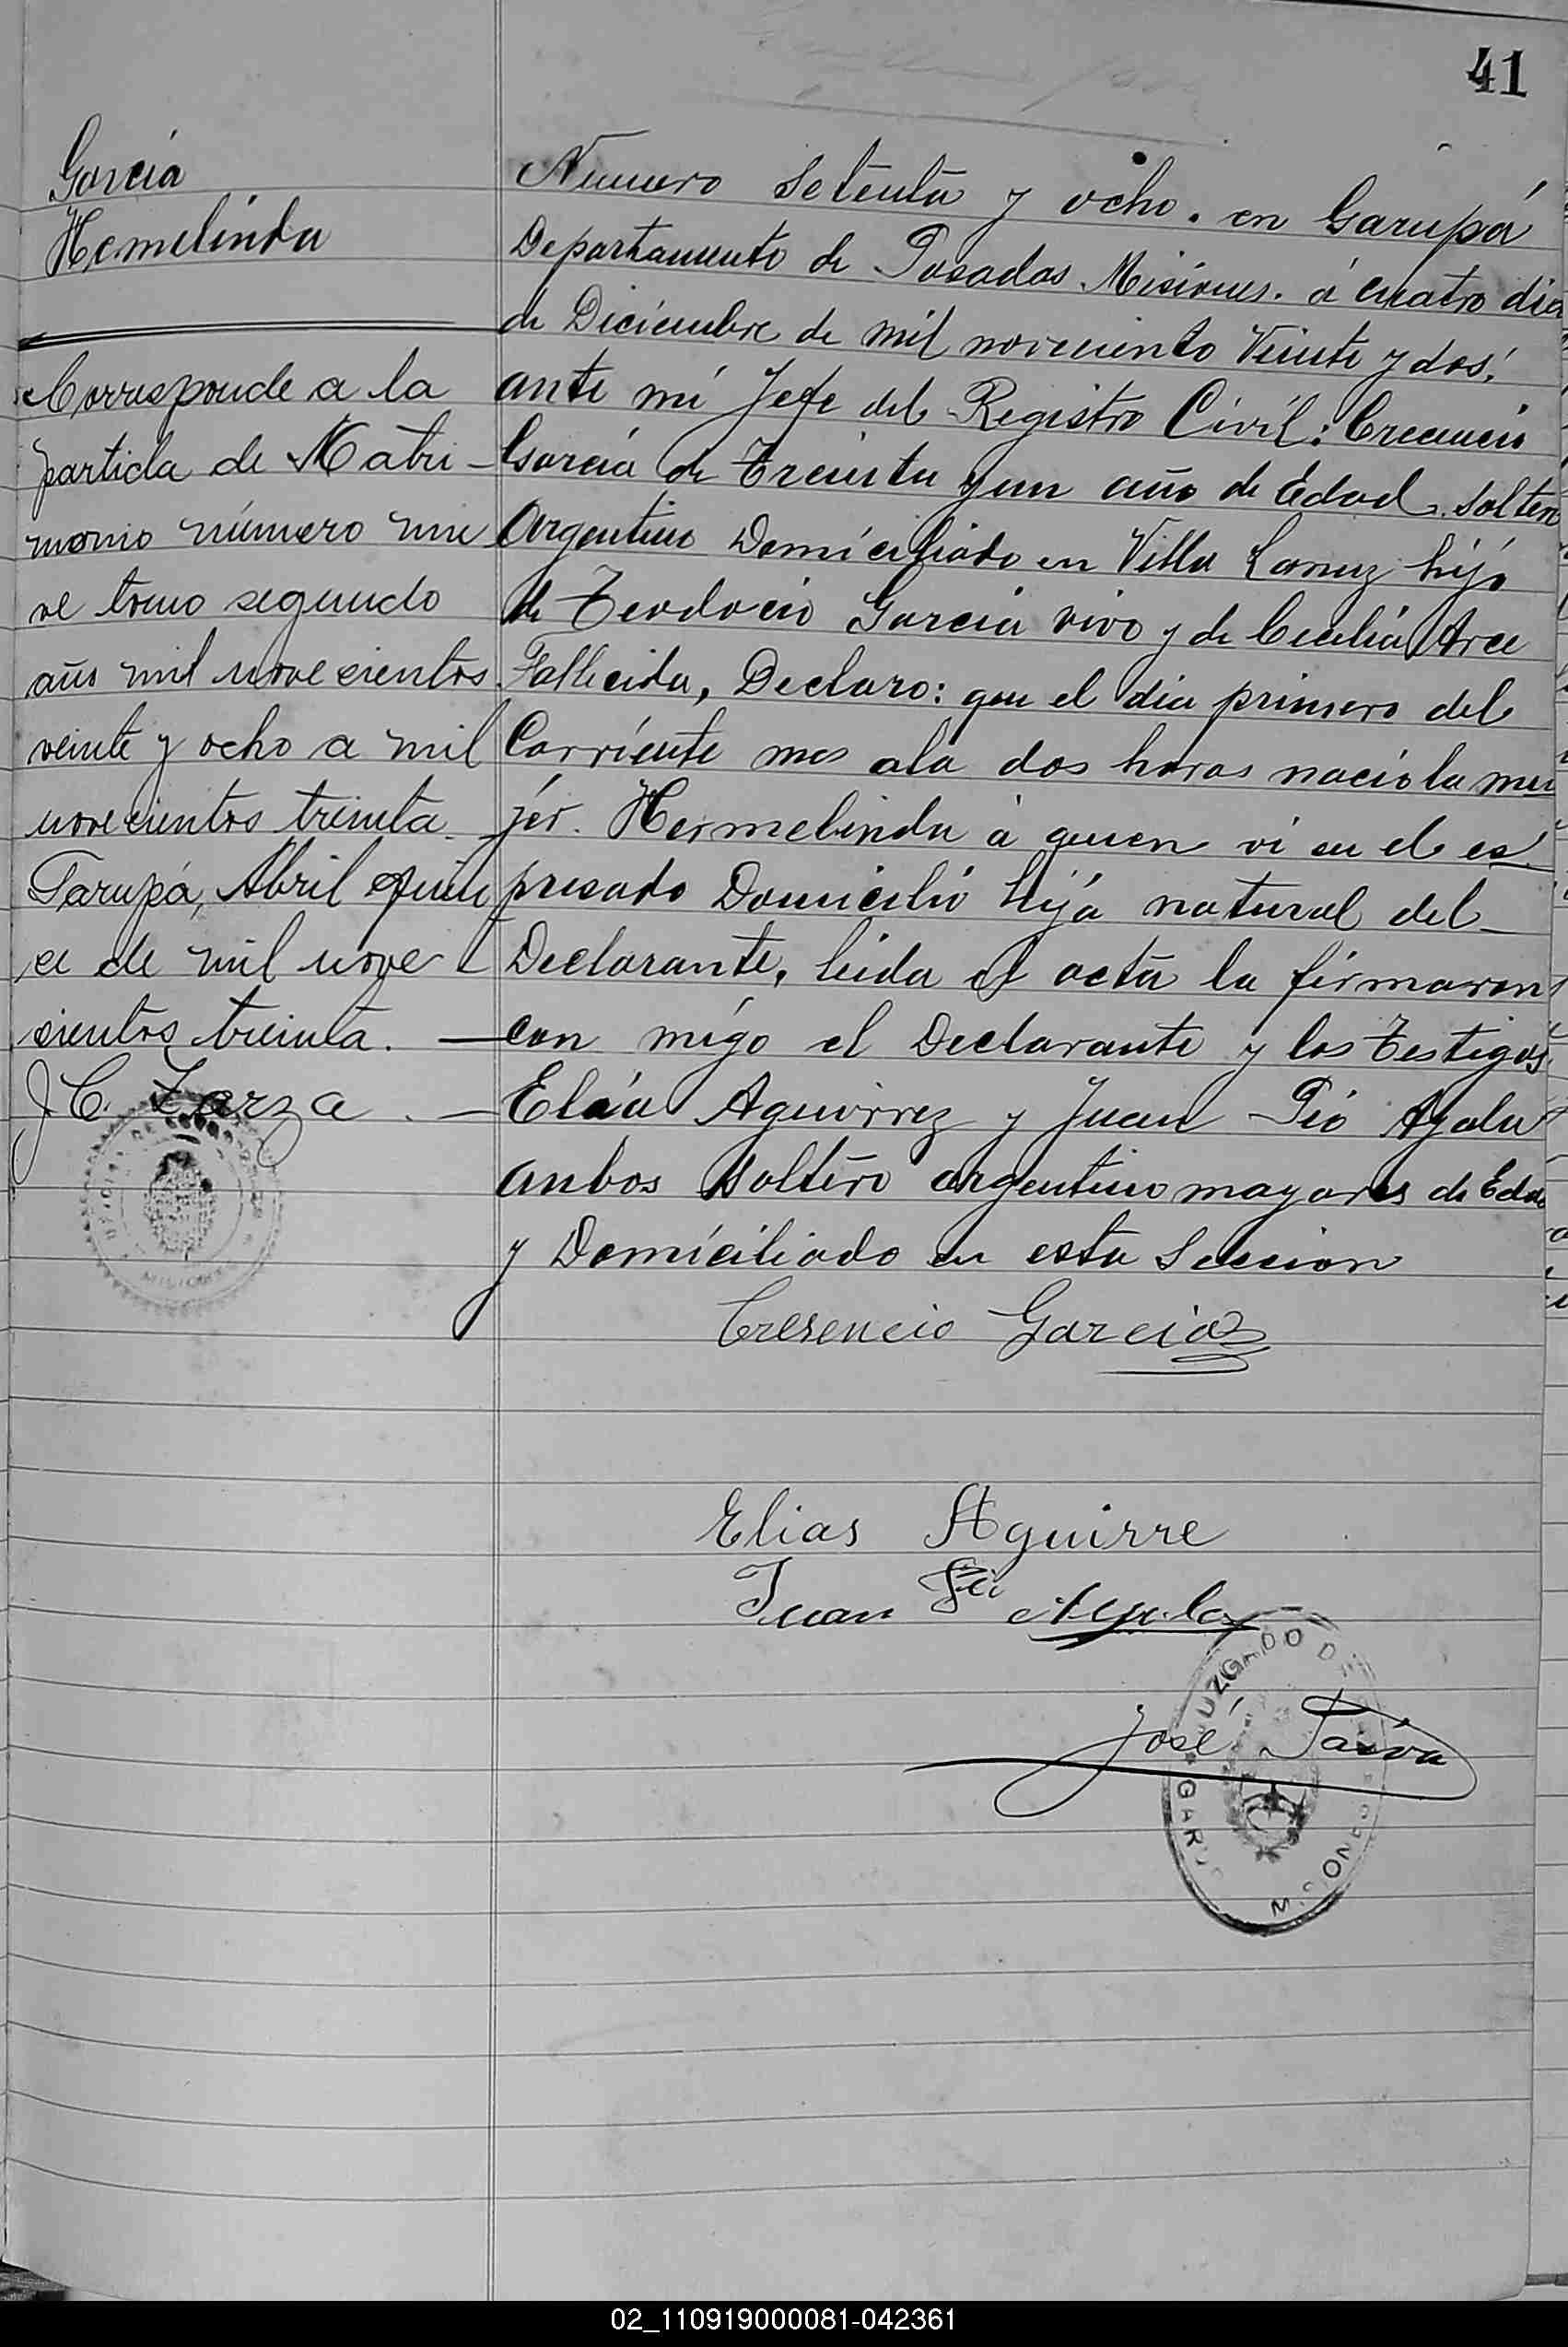 41
García
Hemelinda
Corresponde a la
partida de Matri-
monio número nue
ve tomo segundo
año mil novecientos
veinte y ocho a mil
novecientos treinta.
Garupá, Abril quin
ce de mil nove
cientos treinta. —
J C. Zarza . —
Numero Setenta y ocho. en Garupá
Departamento de Posadas Misiones. á cuatro dia
de Diciembre de mil noveciento Veinte y dos,
ante mi Jefe del Registro Civil: Crecencio
Garcia de treinta y un año de Edad. Solten
Argentino Domiciliado en Villa Lanuz hijo
de Teodocio Garcia vivo y de Cecilia Arce
Fallecida, Declaro: que el dia primero del
Corriente mes ala dos horas nacio la mu
jer. Hermelinda á quien vi en el es
presado Domicilio hija natural del
Declarante, leida el acta la firmaron
con migo el Declarante y los Testigos
Elía Aguirrez y Juan Pio Ayala
anbos soltero argentino mayores de Eda
y Domiciliado en esta Seccion
Cresencio Garcia
Elias Aguirre
Juan Pio Ayala
José Paiva
JUZGADO D
GARU
MISIONES
MISIONES
02_110919000081-042361